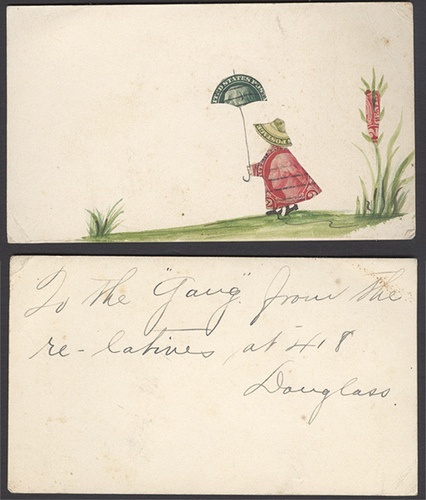 UNITED STATES POST
To the "Gang" from the
re-latives at 418
Douglass.